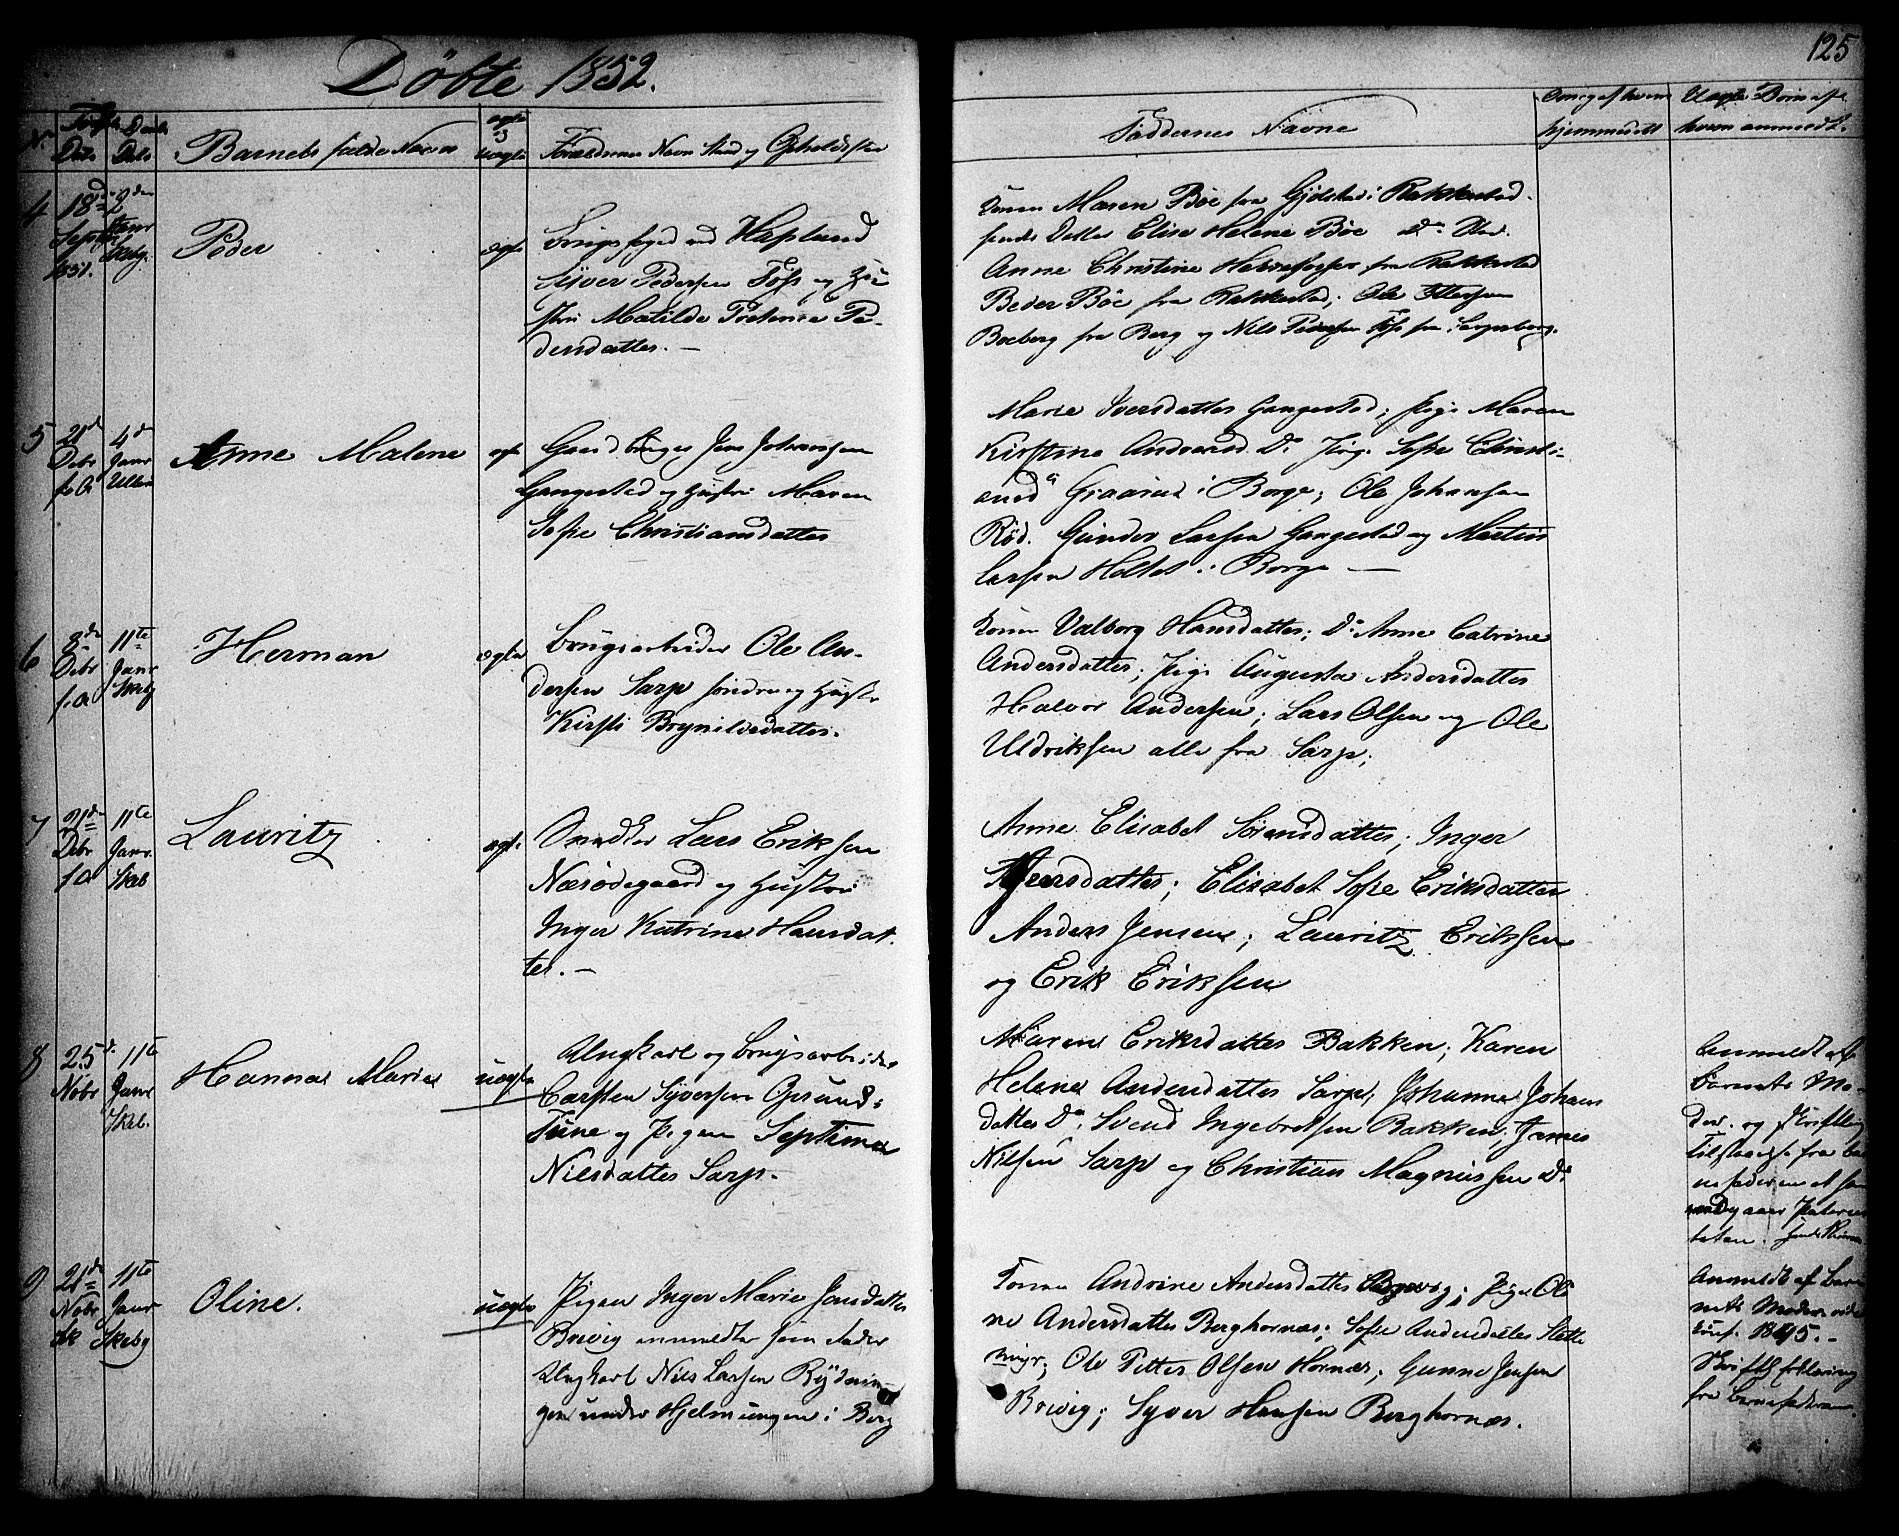 125
Döbte 1852.
No Föds. Dato Daabs Dato Barnets fulde Navn ægte ell. uægte Forældrenes Navn Stand og Opholdssted
Faddernes Navne
hjemmedøbt
Uægte Børn af hvem anmeldt.
4 18de Septbr 1851. 2den Janr Skebg.
Peder
ægte
Brugsfoged ved Haflund
Syver Pedersen Foss og Hu-
stru Matilde Petrine Pe-
dersdatter. —
Konen Maren Böe fra Gjölstad i Rakkestad.
hendes Datter Elise Helene Böe
Anne Christine fra Rakkestad
Peder Böe fra Rakkestad; Ole Ottersen
Boeberg fra Berg og Nils Pedersen Foss fra Sarpsborg.
5 21de Debr f.A 4de Janr Ullerø
Anne Malene
ægte
Gaardbruger Jens Johansen
Gangestad og Hustru Maren
Sofie Christiansdatter
Marie Iversdatter Gangestad; Pige Maren
Kirstine Andreasd. Do Pige Sofie Christi-
ansd Graarud i Borge; Ole Johansen
Röd. Gunder Larsen Gangestad og Martin
Larsen Holtet i Borge —
6 8de Debr f.A 11te Janr Skebg
Herman
ægte
Brugsarbeider Ole An-
dersen Sarp søndre og Hustru
Kirsti Brynildsdatter.
Konen Valborg Hansdatter; Do Anne Catrine
Andersdatter; Pige Augusta Andersdatter
Halvor Andersen; Lars Olsen og Ole
Uldriksen alle fra Sarp;
7 21de Debr f.A 11te Janr. Skeb
Lauritz
ægte
Snedker Lars Eriksen
Næsödegaard og Hustru
Inger Katrine Hansdat-
ter. —
Anne Elisabet Sörensdatter; Inger
Iversdatter; Elisabet Sofie Eriksdatter
Anders Jensen; Lauritz Eriksen
og Erik Eriksen
8 25de Nobr 11te Janr Skeb.
Hanna Marie
uægte
Ungkarl og Brugsarbeider
Carsten Syversen Grund-
Tune og Pigen Septima
Nilsdatter Sarp.
Maren Eriksdatter Bakken; Karen
Helene Andersdatter Sarp; Johanne Johans
datter Do. Svend Ingebretsen Bakken. James
Nilsen Sarp og Christian Magnussen Do
Anmeldt af
Barnets Mo-
der. og skriftlig
Tilstaaelse fra Bar
nefaderen
9 21de Nobr 11te Janr Skebg
Oline.
uægte
Pigen Inger Marie Jonsdatter
Brevig anmeldte som Fader
Ungkarl Nils Larsen Rydnin-
gen under Hjelmungen i Berg
Konen Andrine Andersdatter Brevig; Pige Oli
ne Andersdatter Berghornæs; Sofie Andersdatter Slette
myr; Ole Petter Olsen Hornæs; Gunne Jensen
Brevig; Syver Hansen Berghornæs.
Anmeldt af Bar
nets Moder
1845. —
Skriftlig Erklæring
fra Barnefaderen.